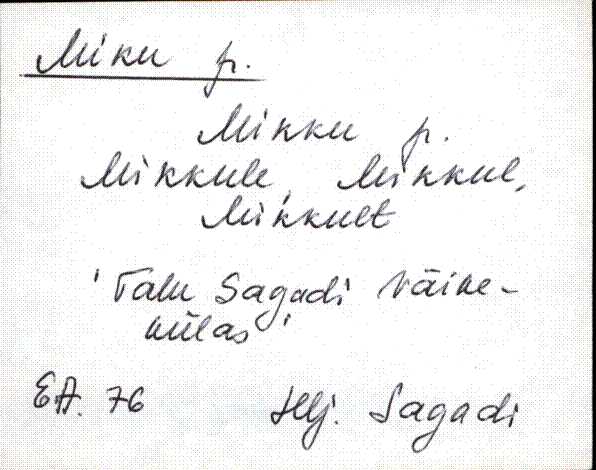 Miku p.
Mikku p.
Mikkule, Mikkul,
Mikkult
'Talu Sagadi Väike-
külas'
E.A. 76 Hlj. Sagadi